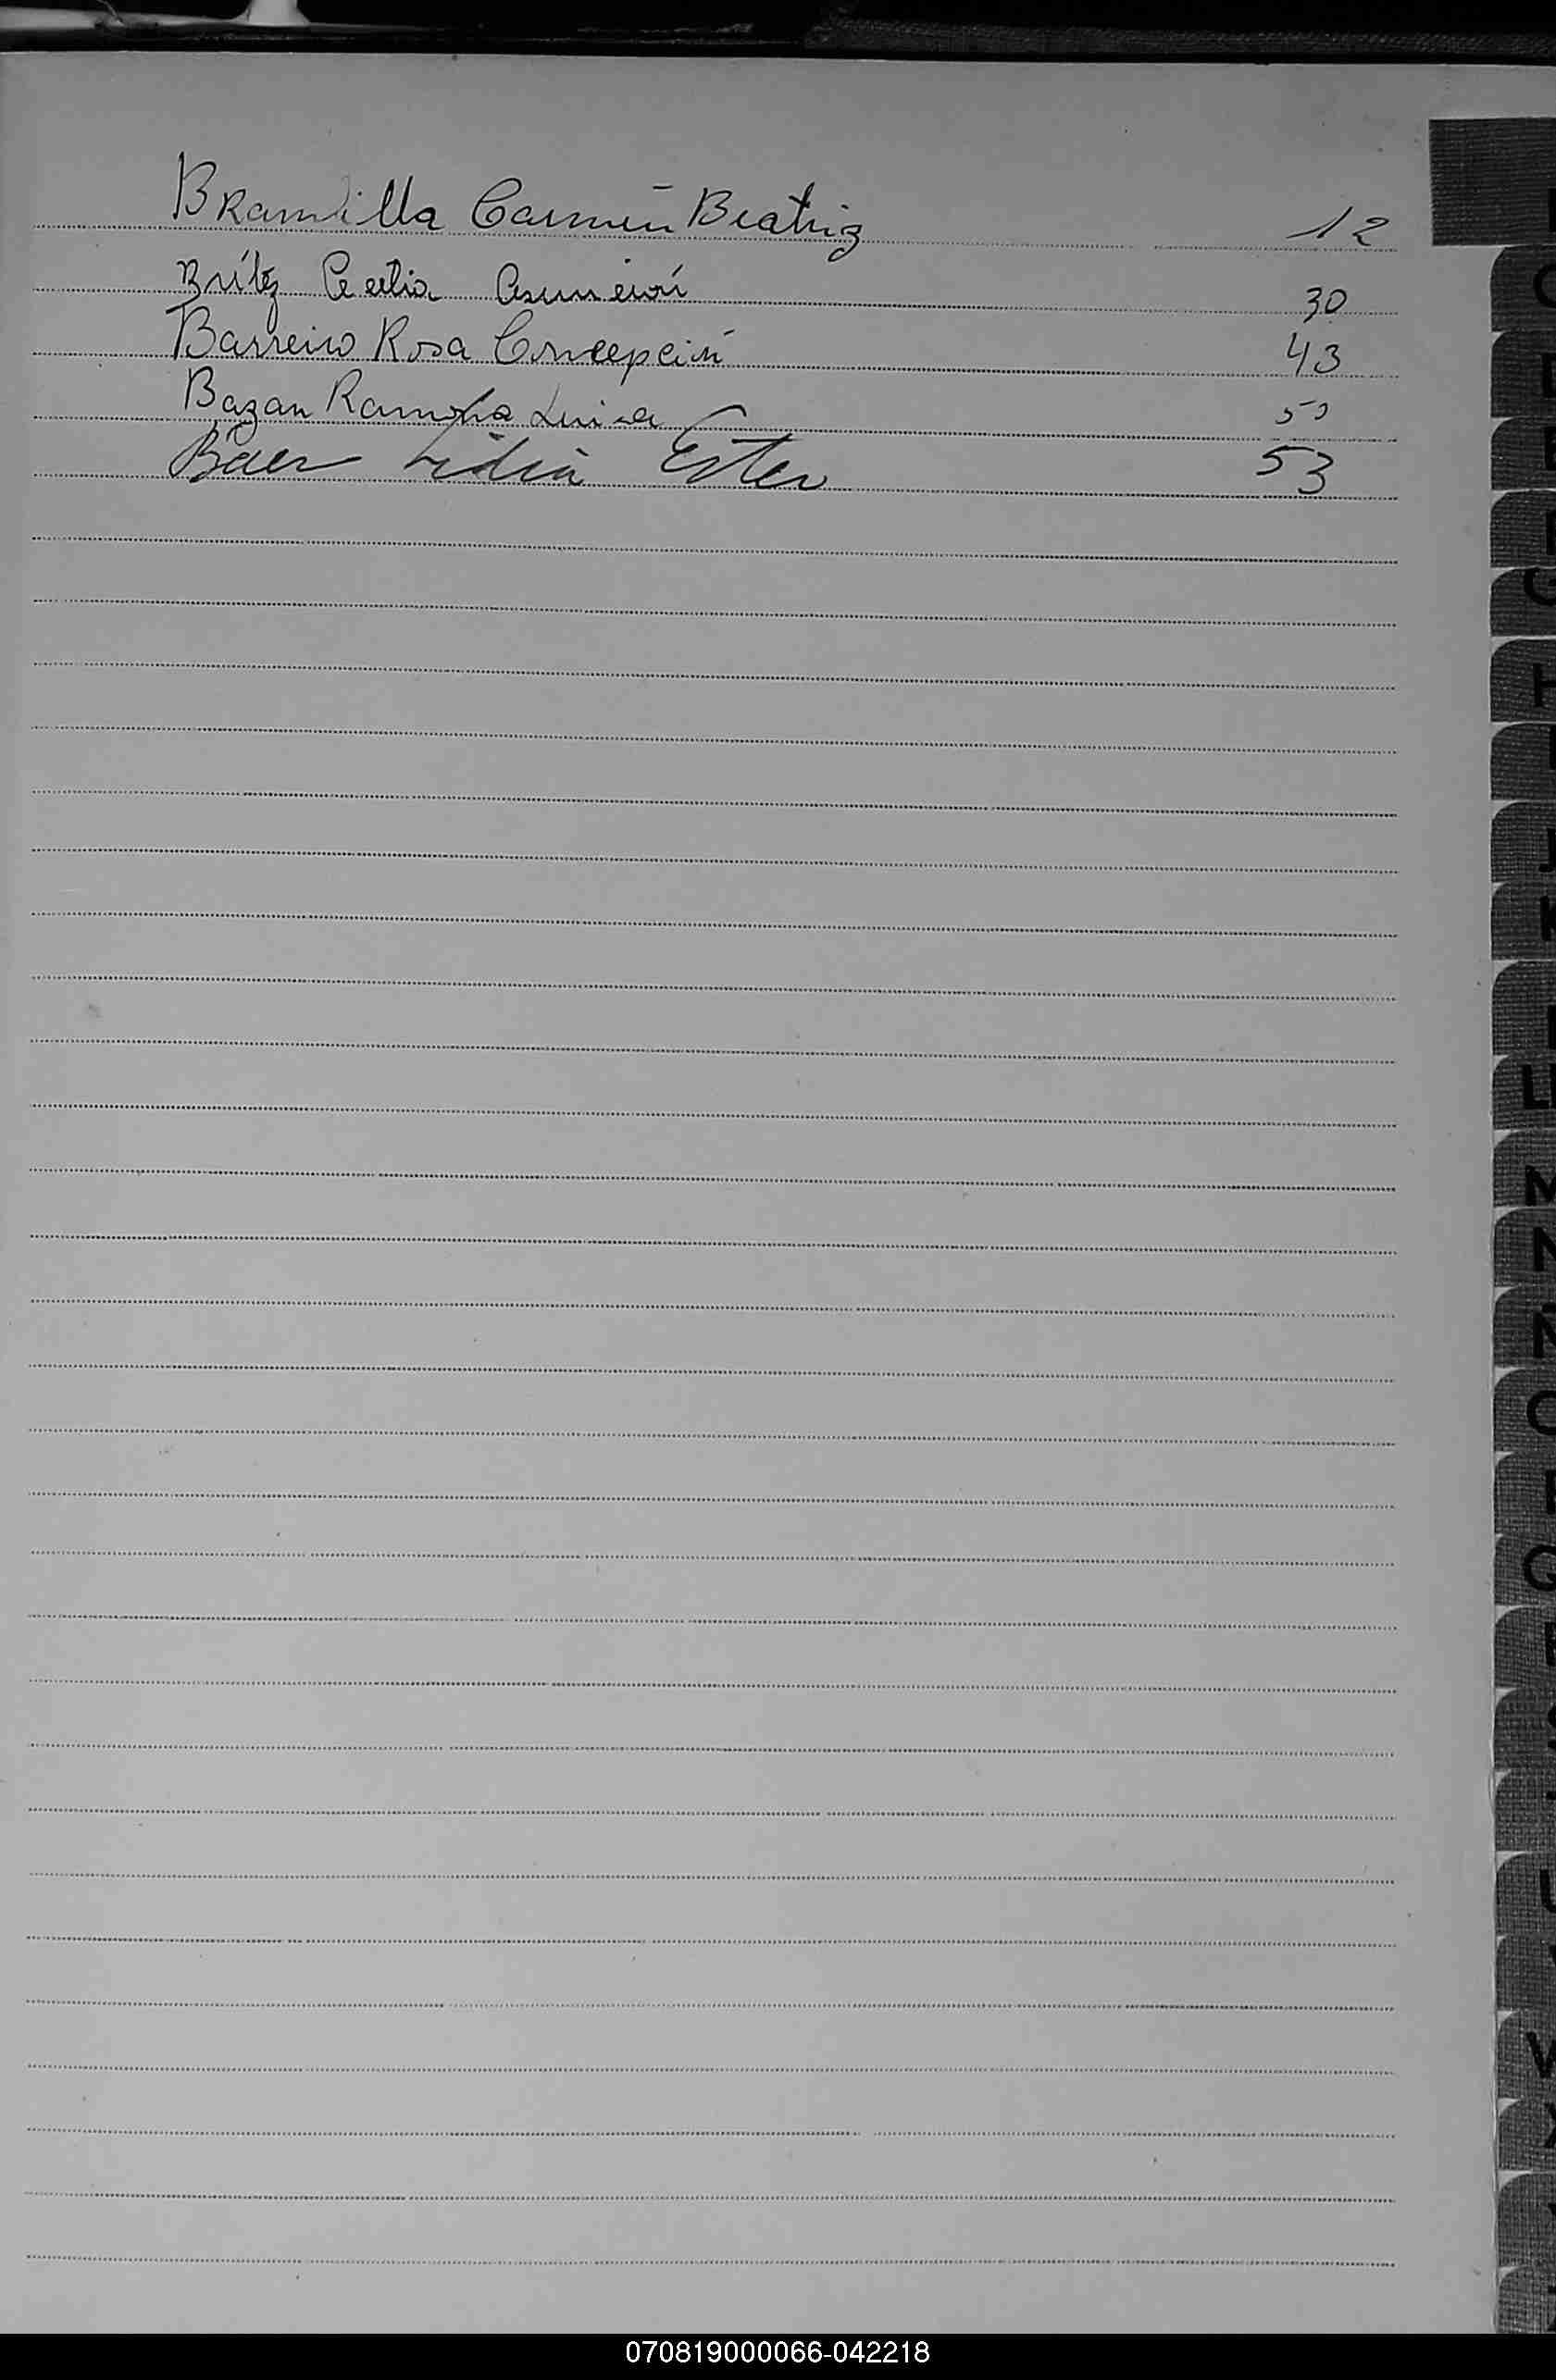 Brambilla Carmen Beatriz 12
Brítez Cecilia Asunción 30
Barreiro Rosa Concepción 43
Bazan Ramona Luisa 50
Báez Lidia Ester 53
C
G
H
J
K
Ll
M
N
Ñ
O
Q
U
W
X
070819000066-042218